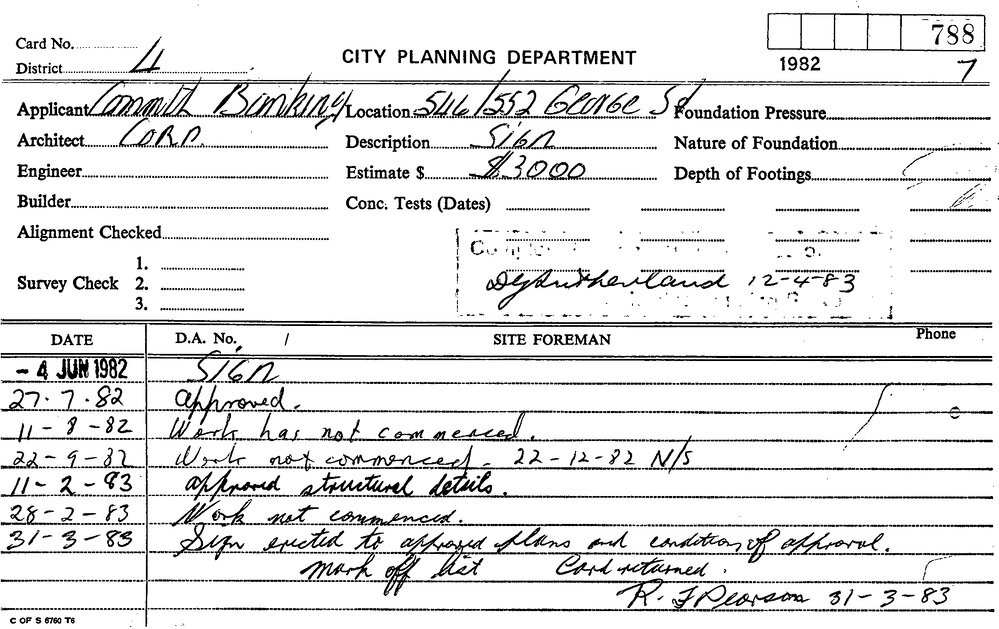 788
Card No.
District 4
CITY PLANNING DEPARTMENT
1982
7
Applicant Commwlth Banking Location 546/552 George St Foundation Pressure
Architect Corp. Description Sign Nature of Foundation
Engineer Estimate $ $3000 Depth of Footings
Builder Conc. Tests (Dates)
Alignment Checked
Survey Check 1. 2. 3.
12-4-83
DATE D.A. No. / SITE FOREMAN Phone
- 4 JUN 1982 Sign
27.7.82 Approved.
11-8-82 Work has not commenced.
22-9-82 Work not commenced. 22-12-82 N/S
11-2-83 approved structural details.
28-2-83 Work not commenced.
31-3-83 Sign erected to approved plans and conditions of approval.
Mark off list Card returned.
R. J Pearson 31-3-83
C OF S 6760 T6